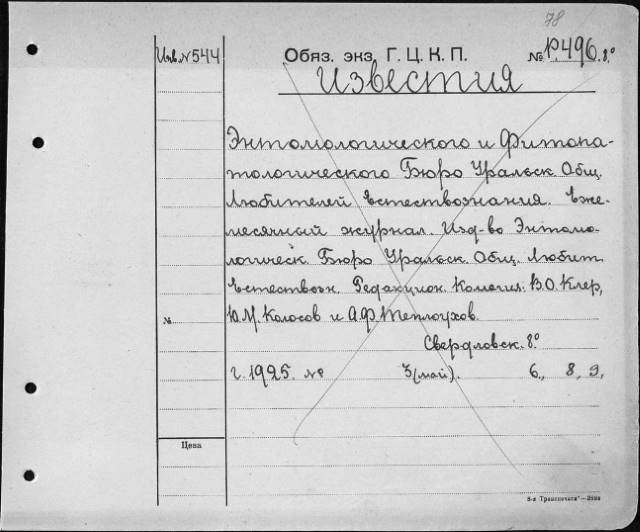 78
Инв. № 544
Обяз. экз. Г. Ц. К. П.
№ Р.496. 8°
Известия
Энтомологического и Фитопа-
тологического Бюро Уральск. Общ.
Любителей Естествознания. Еже-
месячный журнал. Изд-во Энтомо-
логическ. Бюро Уральск. Общ. Любит.
Естествозн. Редакцион. Комегия: В.О. Клер,
Ю.М. Колосов и А.Ф. Теплоухов.
№
Свердловск. 8°
г. 1925. № 3(май). 6, 8, 9,
Цена